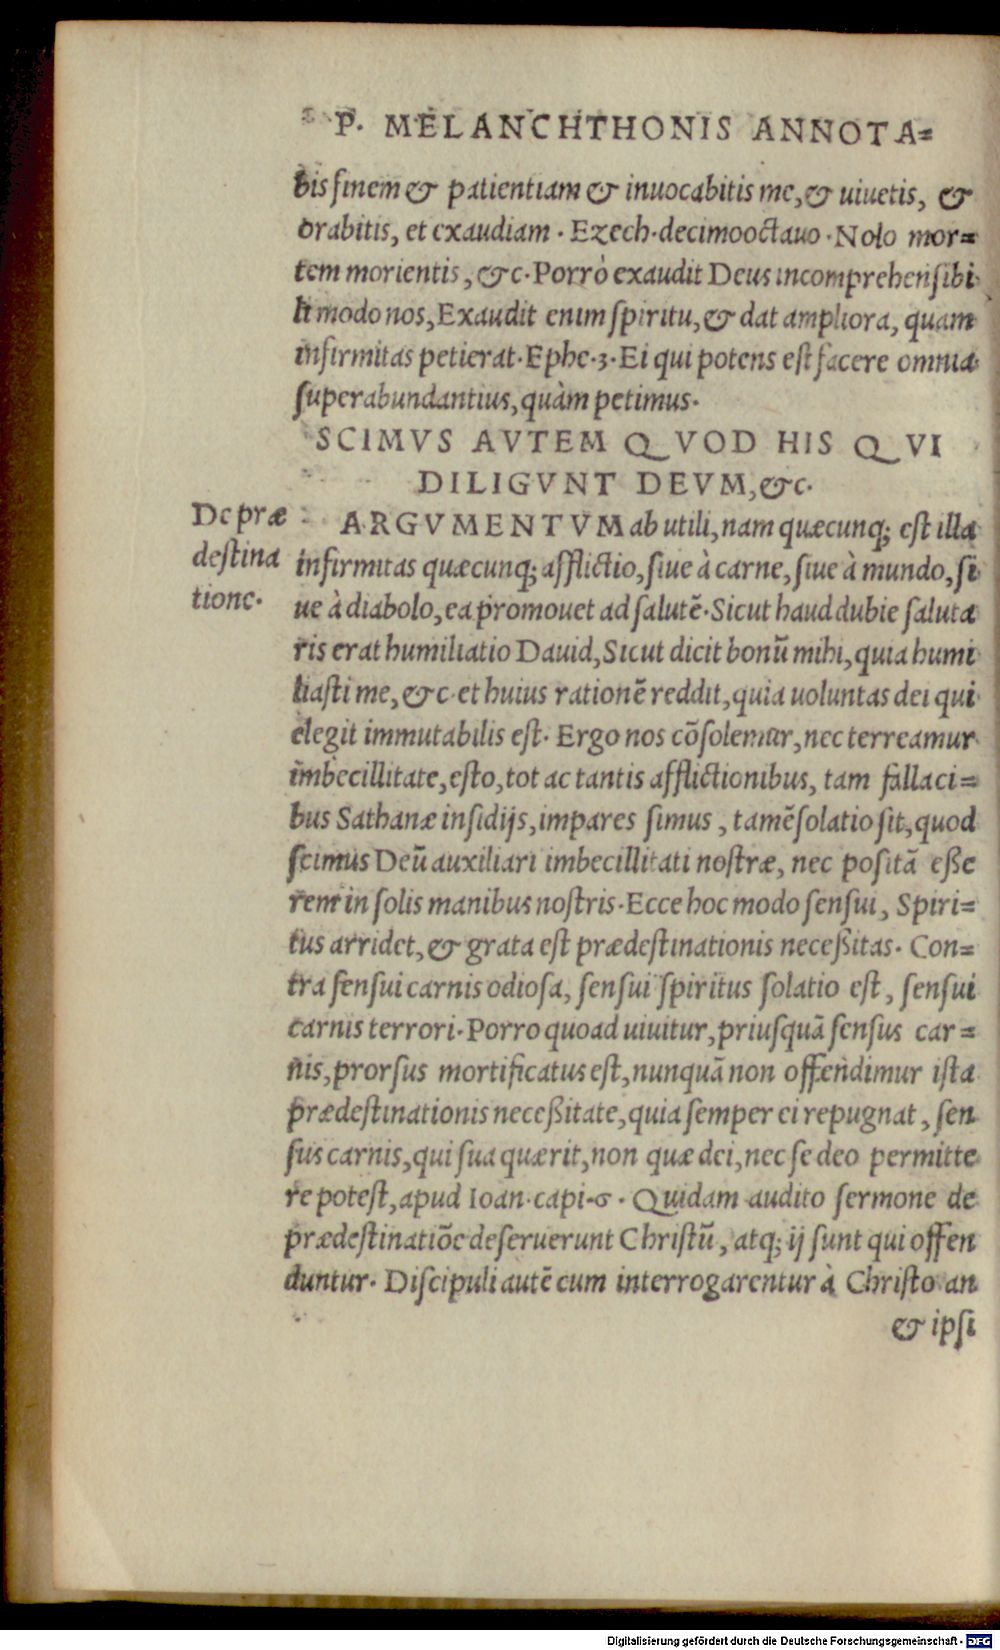 P. MELANCHTHONIS ANNOTA=
bis finem & patientiam & inuocabitis me, & uiuetis, &
orabitis, et exaudiam. Ezech. decimooctauo. Nolo mor=
tem morientis, &c. Porrò exaudit Deus incomprehensibi
li modo nos, Exaudit enim spiritu, & dat ampliora, quam
infirmitas petierat. Ephe. 3. Ei qui potens est facere omnia
superabundantius, quàm petimus.
SCIMVS AVTEM QVOD HIS QVI
DILIGVNT DEVM, &c.
De præ
destina
tione.
ARGVMENTVM ab utili, nam quæcunq; est illa
infirmitas quæcunq; afflictio, siue à carne, siue à mundo, si
ue à diabolo, ea promouet ad salutē. Sicut haud dubie saluta
ris erat humiliatio Dauid, Sicut dicit bonū mihi, quia humi
liasti me, &c. et huius rationē reddit, quia uoluntas dei qui
elegit immutabilis est. Ergo nos cōsolemur, nec terreamur
imbecillitate, esto, tot ac tantis afflictionibus, tam fallaci=
bus Sathanæ insidijs, impares simus, tamē solatio sit, quod
scimus Deū auxiliari imbecillitati nostræ, nec positā eße
rem in solis manibus nostris. Ecce hoc modo sensui, Spiri=
tus arridet, & grata est prædestinationis neceßitas. Con=
tra sensui carnis odiosa, sensui spiritus solatio est, sensui
carnis terrori. Porro quoad uiuitur, priusquā sensus car=
nis, prorsus mortificatus est, nunquā non offendimur ista
prædestinationis neceßitate, quia semper ei repugnat, sen
sus carnis, qui sua quærit, non quæ dei, nec se deo permitte
re potest, apud Ioan. capi. 6. Quidam audito sermone de
prædestinatiōe deseruerunt Christū, atq; ij sunt qui offen
duntur. Discipuli autē cum interrogarentur à Christo an
& ipsi
Digitalisierung gefördert durch die Deutsche Forschungsgemeinschaft - DFG